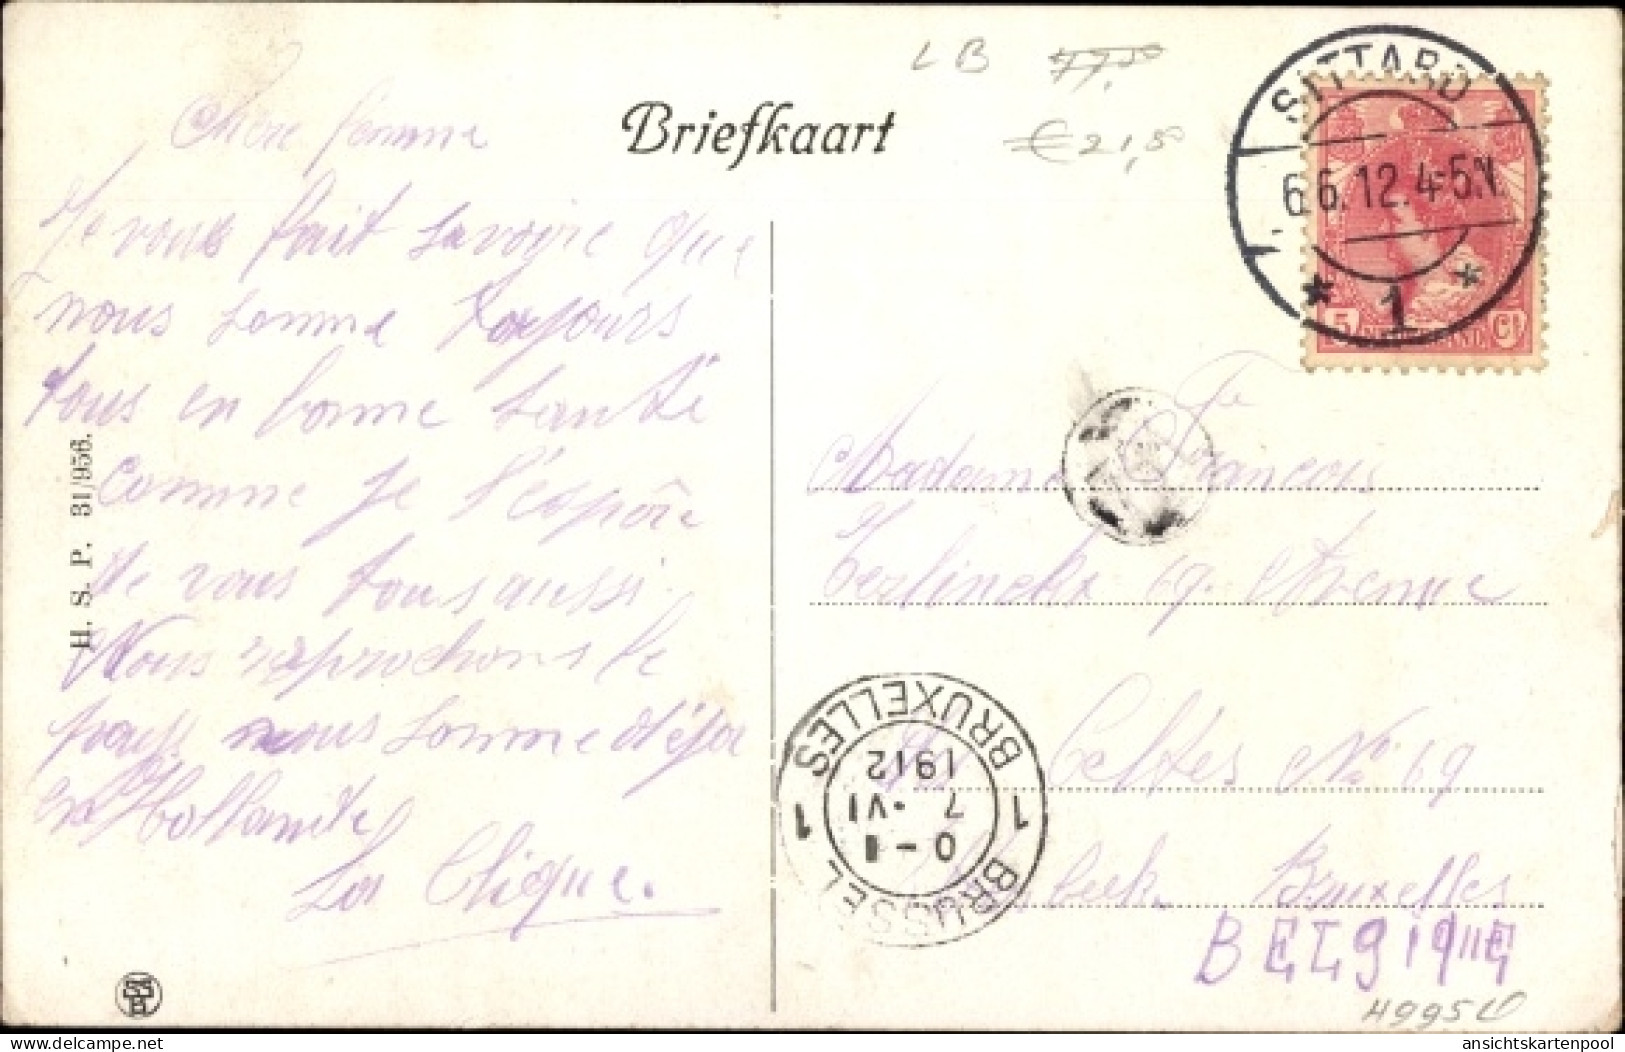 LB 77,50
€ 21,50
Briefkaart
SITTARD
6.6.12.4-5.N.
* 1 *
5 NEDERLAND Ct
Chère femme
Je vous fait savoire que
nous somme toujours
tous en bonne santé
comme je l'éspère
de vous tous aussi.
Nous raprochons le
pays nous somme déja
en Hollande
La Clique.
H. S. P. 31/956.
Madame François
Terlinckx 69. Avenue
Celtes No 69
beek. Bruxelles
BELgiqUE
1 BRUXELLES 1
1912
7 ·VI
0-1
BRUSSEL
H995
delcampe.net
ansichtskartenpool